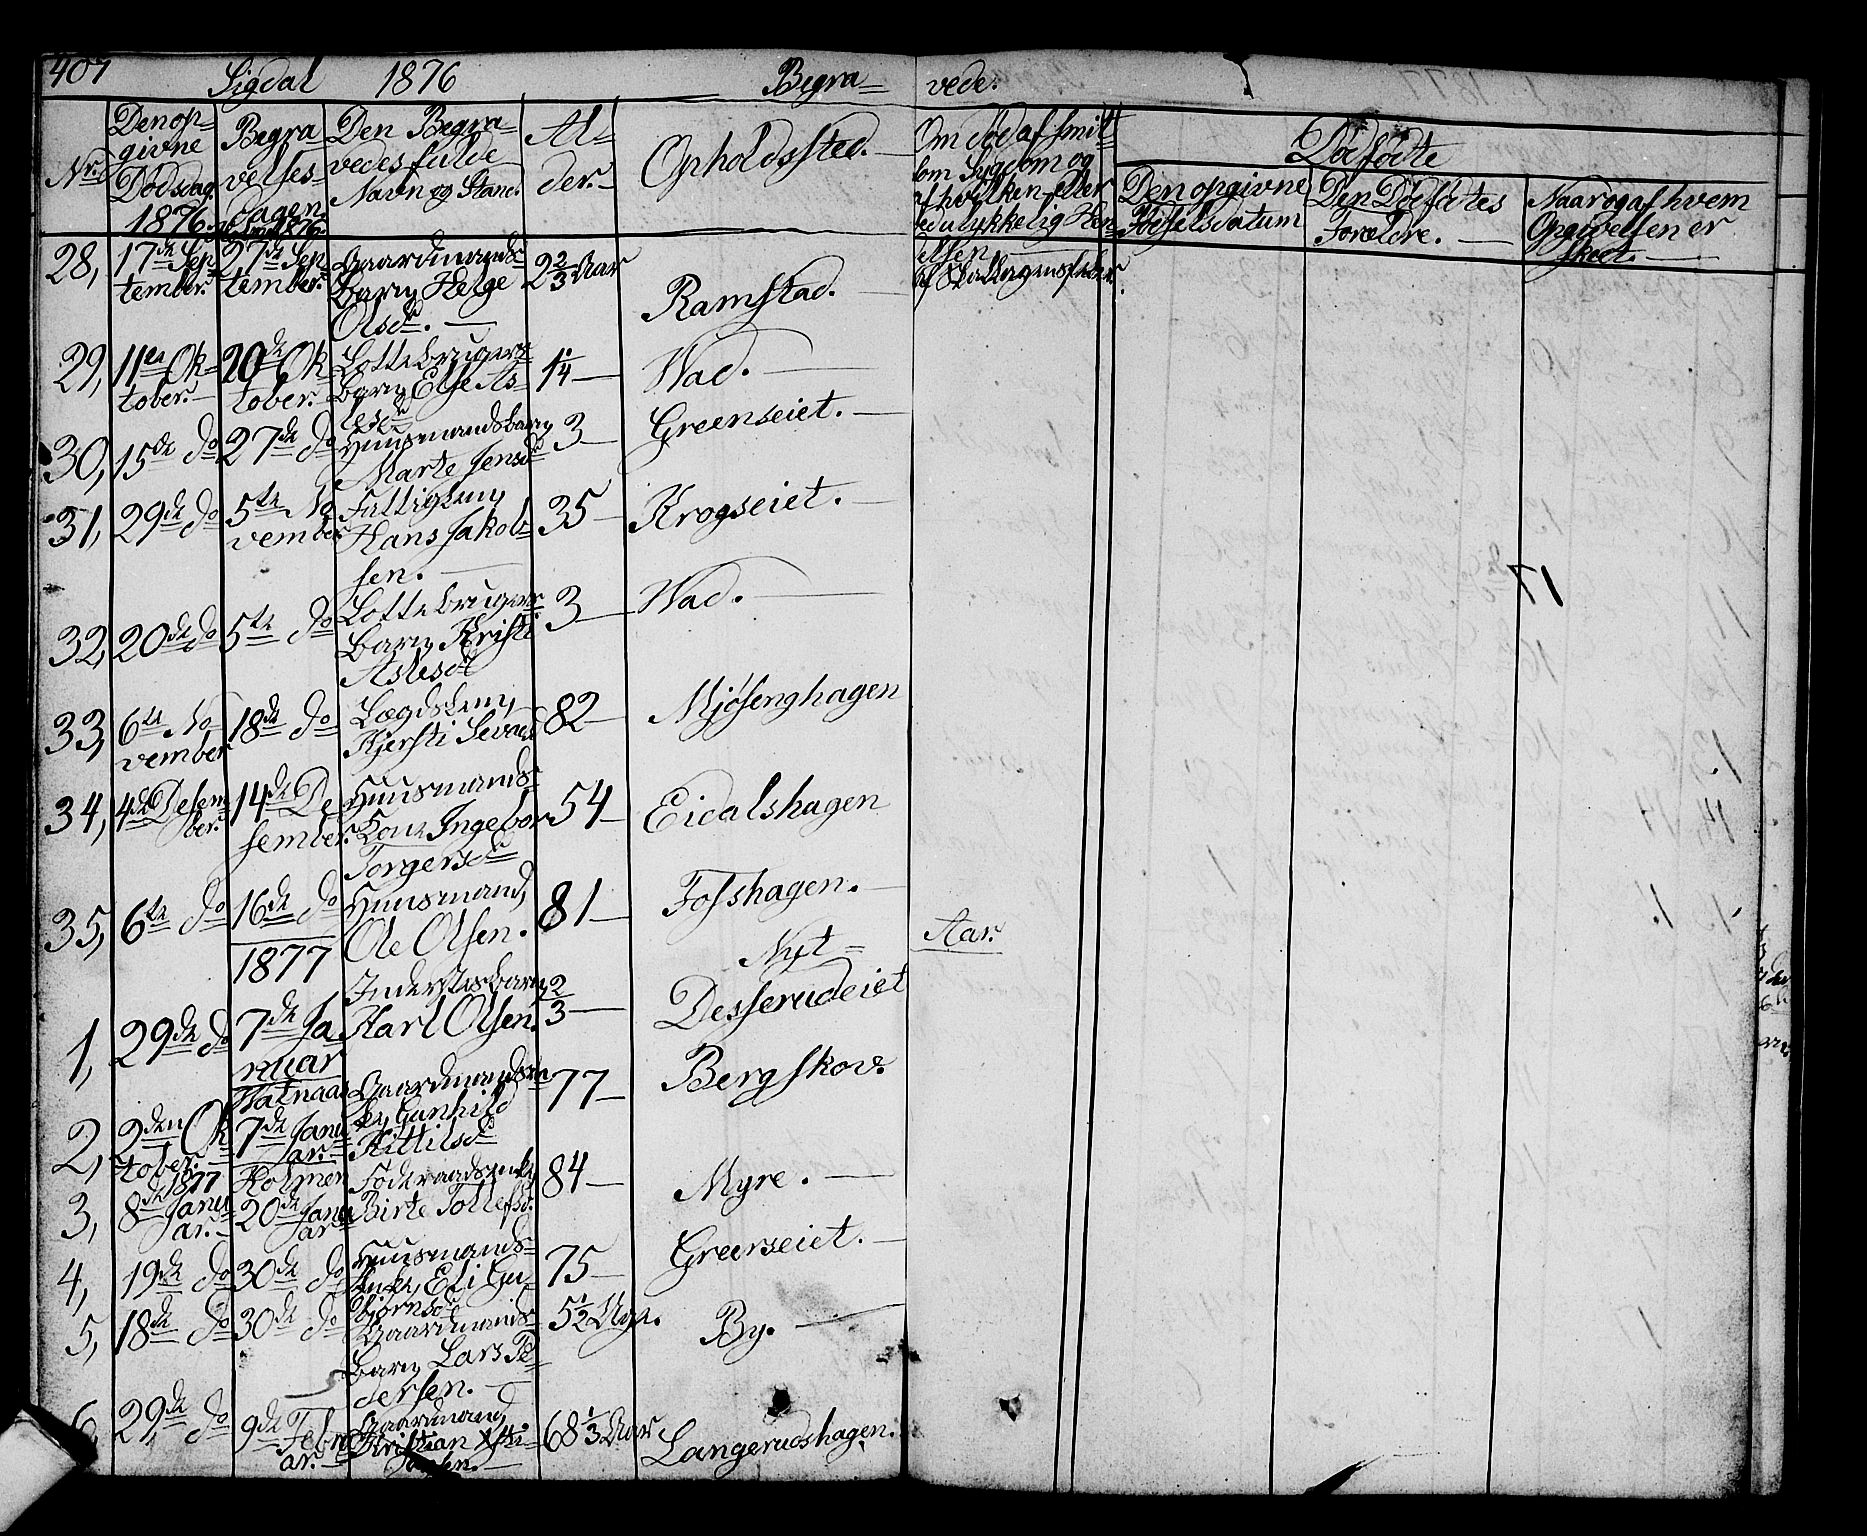 407 Sigdal 1876 Begra= vede.
Nr. Den op=givne Dödsdag 1876. Begravelses=dagen 1876. Den Begravedes fulde Navn og Stand. Al=der. Opholdssted. Om död af smit=som Sygdom og af hvilken eller ved ulykkelig Hen=delsen
Dødfødte
Den opgivne Födselsdatum Den Dödfødtes Forældre. Naar og af hvem Opgivelsen er skeet.
28, 17de Sep=tember. 27de Sep=tember. Gaardmands=barn Helge Olsdr. 2 2/3 Aar Ramstad. af Skarlagensfeber.
29, 11te Ok=tober. 20de Ok=tober. Lottebrugers barn Else As=lesdr 1 1/4 Wad.
30, 15de do 27de do Huusmandsbarn Marte Jensdr 3 Greenseiet.
31, 29de do 5te No=vember Fattiglem Hans Jakob=sen. 35 Krogseiet.
32, 20de do 5te do Lottebruger barn Kristi Aslesdr 3 Wad.
33, 6te No=vember 18de do Lægdslem, Kjersti 82 Mjösenghagen
34, 4de Desem=ber. 14de De=sember. Huusmands=Kone Ingebor Torgersdr 54 Eidalshagen
35, 6te do 16de do Huusmand, Ole Olsen. 81 Fosshagen.
1877 Nyt= Aar.
1, 29de do 7de Ja=nuar Inderstesbarn Karl Olsen. 2/3 Desserudeiet
Vatnaas
2, 2den Ok=tober. 7de Janu=ar. Gaardmandsen=ke, Gunhild Kittilsdr 77 Bergskov.
1877 Holmen
3, 8de Janu=ar. 20de Janu=ar Föderaadsenke, Birte Tollefsdr. 84 Myre.
4, 19de do 30de do Huusmands=Enke, Eli Gu=björnsdr 75 Greenseiet.
5, 18de do 30de do Gaardmands=barn Lars Pe=dersen. 5 1/2 Uge. By.
6 29de do 9de Febru=ar. Gaardmand, Kristian Kristi=ansen. 68 1/3 Aar Langerudshagen.
17